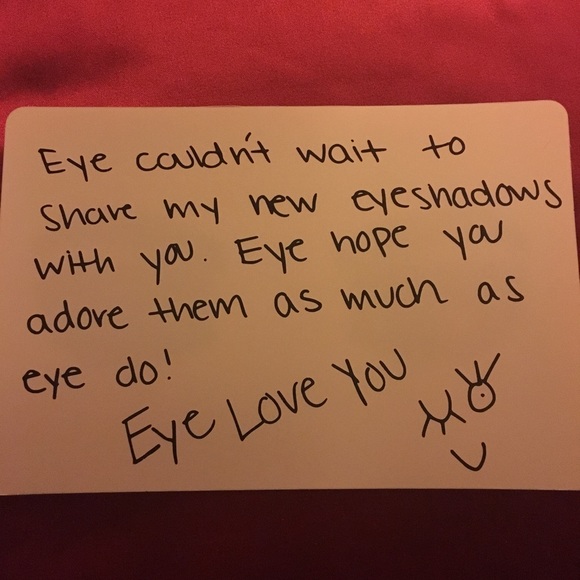 Eye couldn't wait to
share my new eyeshadows
with you. Eye hope you
adore them as much as
eye do!
Eye Love You